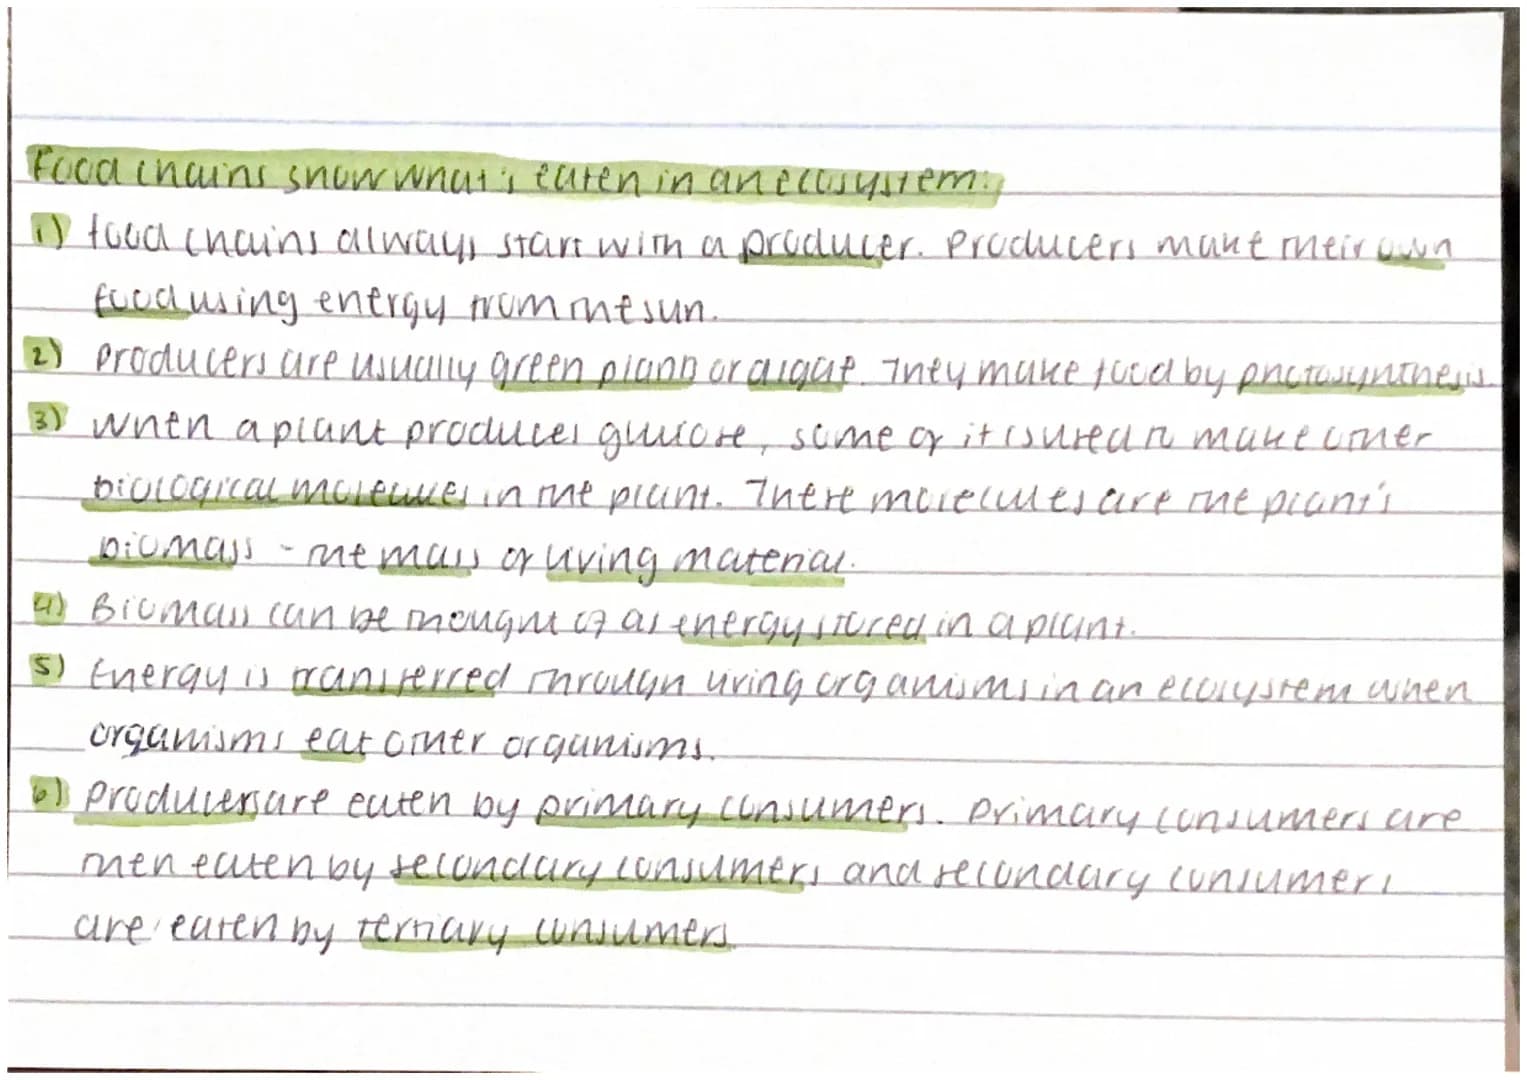 Food chains show what's eaten in an ecosystem:
1) food chains always start with a producer. Producers make their own
food using energy from the sun.
2) producers are usually green plants or algae. They make food by photosynthesis.
3) when a plant produces glucose, some of it is used to make other
biological molecules in the plant. These molecules are the plant's
biomass - the mass of living material.
4) Biomass can be thought of as energy stored in a plant.
5) Energy is transferred through living organisms in an ecosystem when
organisms eat other organisms.
6) producers are eaten by primary consumers. Primary consumers are
then eaten by secondary consumers and secondary consumers
are eaten by tertiary consumers